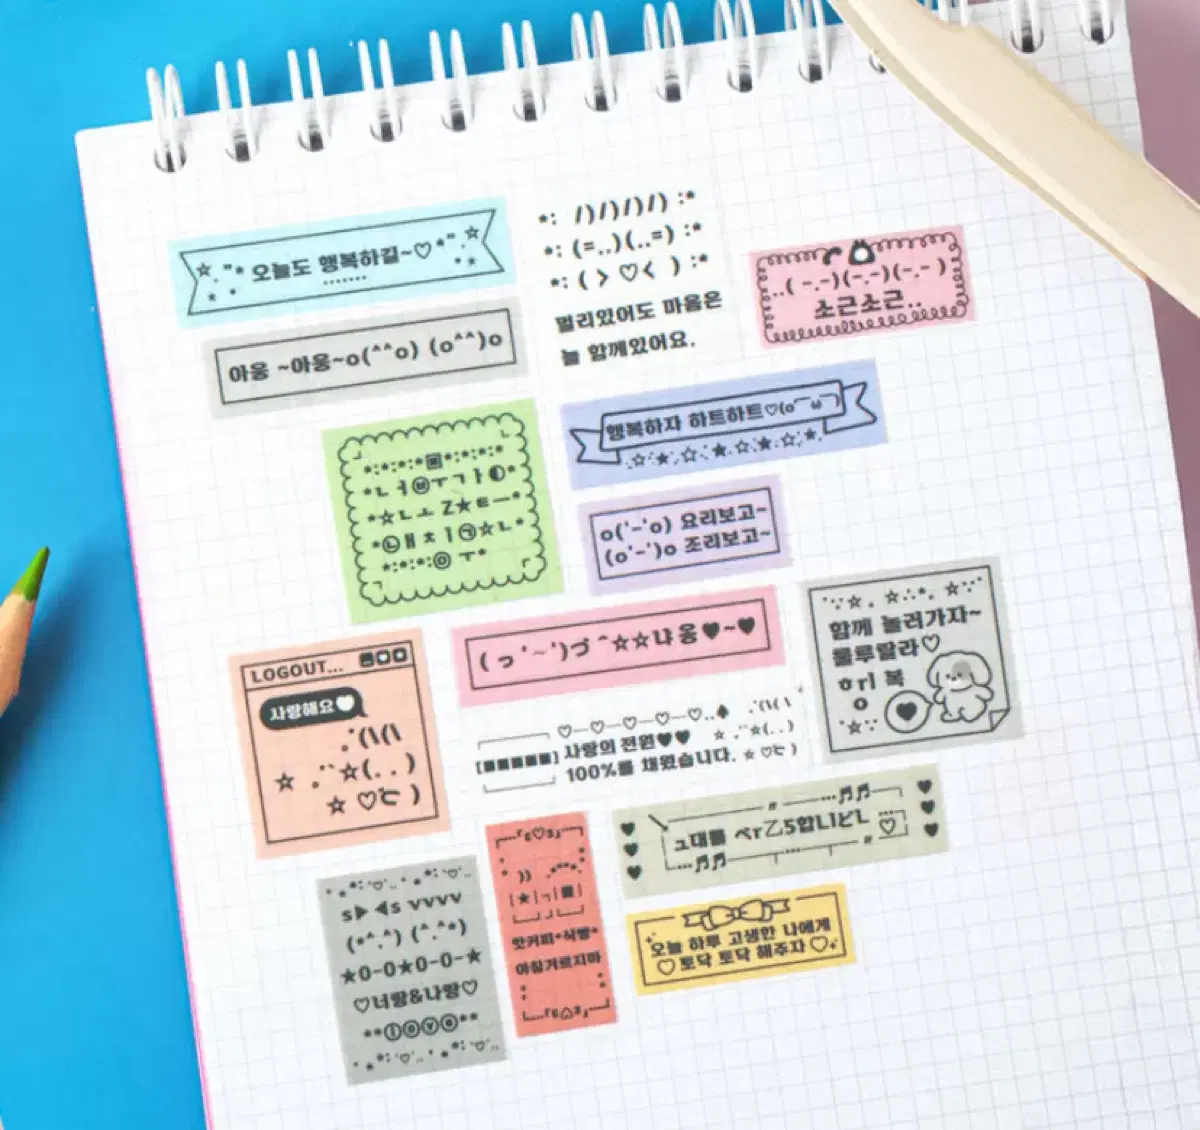 ☆ . "* 오늘도 행복하길~♡*" . ☆
*: /)/)/)/) :*
*: (=..)(..=) :*
*: ( > ♡< ) :*
멀리있어도 마음은
늘 함께있어요.
..( -.-)(-.-)(-.- )
소근소근..
아웅 ~아웅~o(^^o) (o^^)o
행복하자 하트하트♡(o¯ω¯)
.☆.★.☆.★.☆.★.☆.★.
*:*:*:*▣*:*:*:*
*ㄴㅓ㉥ㅜㄱㅏ◐*
*☆ㄴㅗ Z★ㅌㅡ*
*㉡ㅐㅊㅣ㉠☆ㄴ*
*:*:*:◎ ㅜ*
o('-'o) 요리보고~
(o'-')o 조리보고~
( っ '~')づ ^☆☆냐옹♥~♥
함께 놀러가자~
룰루랄라♡
ㅎrl 복
ㅇ
LOGOUT...
사랑해요♥
.˚(\(\
☆ .˙`˙☆(. . )
☆ ♡で )
♡—♡—♡—♡—♡..♠ .˚(\(\
[■■■■■] 사랑의 전원♥♥ ☆ .˙˙☆(. . )
100%를 채웠습니다. ☆ ♡で )
ㅋ대를 ㅅrZ5합LIㄷL ♡
s▶◀s vvvv
(*^.^) (^.^*)
★0-0★0-0-★
♡너랑&나랑♡
**ⓛⓞⓥⓔ**
|★|ㄱ|■|
맛커피*식빵*
아침거르지마
오늘 하루 고생한 나에게
♡토닥 토닥 해주자♡